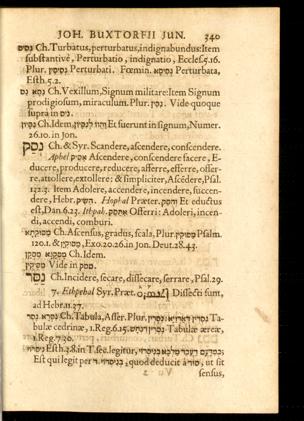 JOH. BUXTORFII JUN. 340
נסיס Ch. Turbatus, perturbatus, indignabundus: Item
substantivè, Perturbatio, indignatio, Eccles. 5. 16.
Plur. נסיסין Perturbati. Fœmin. נסיסא Perturbata,
Esth. 5. 2.
נסא נס Ch. Vexillum, Signum militare: Item Signum
prodigiosum, miraculum. Plur. נסין. Vide quoque
supra in נוס.
נסין Ch. Idem, והוו לנסין Et fuerunt in signum, Numer.
26. 10. in Jon.
נסק Ch. & Syr. Scandere, ascendere, conscendere.
Aphel אסיק Ascendere, conscendere facere, E-
ducere, producere, reducere, afferre, efferre, offer-
re, attollere, extollere: & simpliciter, Ascēdere, Psal.
132. 3. Item Adolere, accendere, incendere, succen-
dere, Hebr. השיק. Hophal Præter. הוסק Et eductus
est, Dan. 6. 23. Ithpah. אתסק Offerri: Adoleri, incen-
di, accendi, comburi.
מסוקתא Ch. Ascensus, gradus, scala, Plur. מסוקין Psalm.
120. 1. & מסקין, Exo. 20. 26. in Jon. Deut. 28. 43.
מסקא מסקן Ch. Idem.
מסקין Vide in מסק.
נסר Ch. Incidere, secare, dissecare, serrare, Psal. 29.
7. Ethpehal Syr. Præt. Dissecti sunt,
ad Hebr. 11. 37.
נסרא נסר Ch. Tabula, Asser, Plur. נסרין Ta-
bulæ cedrinæ, 1. Reg. 6. 15. נסרין Tabulæ æreæ,
1. Reg. 7. 30.
Esth. 2. 8. in T. sec. legitur,
Est qui legit per ד, quod deducit à סור, ut sit
Vu 2 sensus,